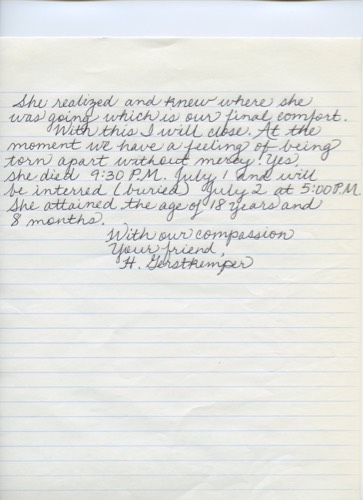 She realized and knew where she
was going which is our final comfort.
With this I will close. At the
moment we have a feeling of being
torn apart without mercy. Yes,
she died 9:30 P.M. July 1 and will
be interred (buried) July 2 at 5:00 P.M.
She attained the age of 18 years and
8 months.
With our compassion
Your friend,
H. Gerstkemper